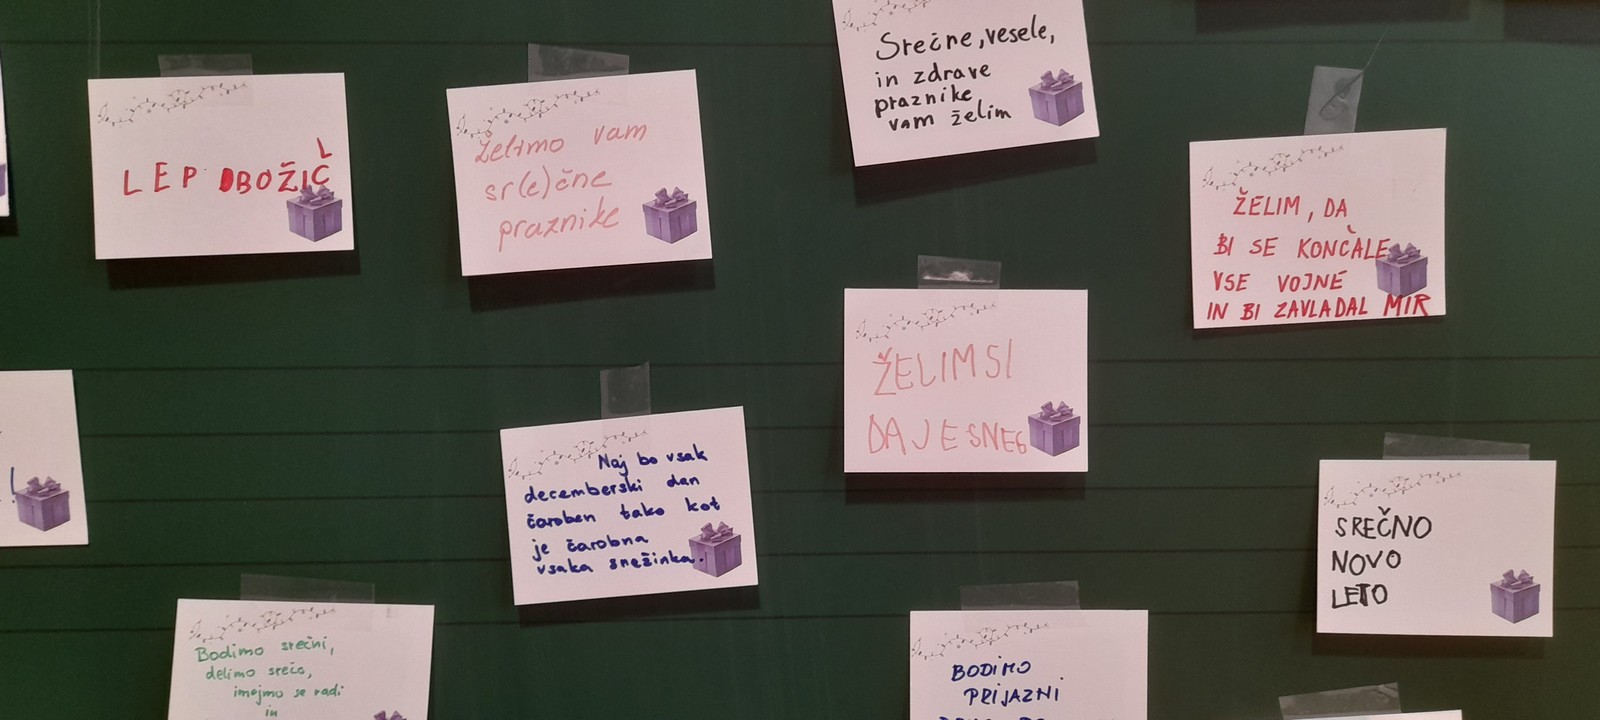 LEP BOŽIČ
Želimo vam
sr(e)čne
praznike
Srečne, vesele,
in zdrave
praznike
vam želim
ŽELIM, DA
BI SE KONČALE
VSE VOJNE
IN BI ZAVLADAL MIR
ŽELIM SI
DA JE SNEG
Naj bo vsak
decemberski dan
čaroben tako kot
je čarobna
vsaka snežinka.
SREČNO
NOVO
LETO
Bodimo srečni,
delimo srečo,
imejmo se radi
in
BODIMO
PRIJAZNI